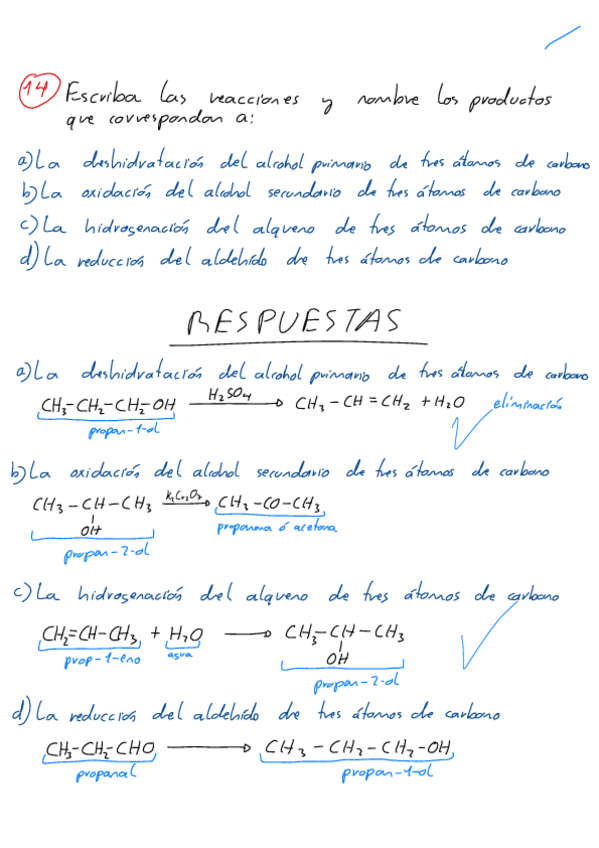 14 Escriba las reacciones y nombre los productos
que correspondan a:
a) La deshidratación del alcohol primario de tres átomos de carbono
b) La oxidación del alcohol secundario de tres átomos de carbono
c) La hidrogenación del alqueno de tres átomos de carbono
d) La reducción del aldehído de tres átomos de carbono
RESPUESTAS
a) La deshidratación del alcohol primario de tres átomos de carbono
CH₃-CH₂-CH₂-OH H₂SO₄ → CH₃-CH=CH₂ + H₂O eliminación
propan-1-ol
b) La oxidación del alcohol secundario de tres átomos de carbono
CH₃-CH-CH₃ K₂Cr₂O₇ → CH₃-CO-CH₃
OH propanona ó acetona
propan-2-ol
c) La hidrogenación del alqueno de tres átomos de carbono
CH₂=CH-CH₃ + H₂O → CH₃-CH-CH₃
prop-1-eno agua OH
propan-2-ol
d) La reducción del aldehído de tres átomos de carbono
CH₃-CH₂-CHO → CH₃-CH₂-CH₂-OH
propanal propan-1-ol